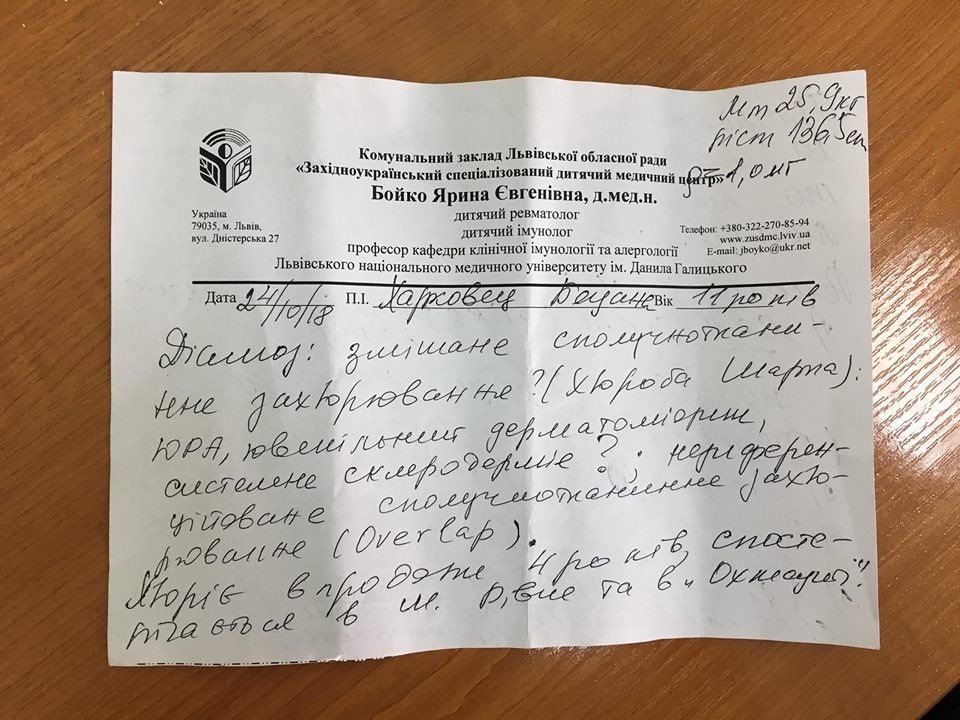 Мт 25,9кг
ріст 136,5см
1,0 мг
Комунальний заклад Львівської обласної ради
«Західноукраїнський спеціалізований дитячий медичний центр»
Бойко Ярина Євгенівна, д.мед.н.
дитячий ревматолог
дитячий імунолог
професор кафедри клінічної імунології та алергології
Львівського національного медичного університету ім. Данила Галицького
Україна
79035, м. Львів,
вул. Дністерська 27
Телефон: +380-322-270-85-94
www.zusdmc.lviv.ua
E-mail: jboyko@ukr.net
Дата 24/10/18 П.І. Харковец Вік 11 років
Діагноз: змішане сполучноткани-
нне захворювання ? (Хвороба Шарпа):
ЮРА, ювенільний дерматоміозит,
системна склеродермія ?; недиферен-
ційоване сполучнотканинне захво-
рювання (Overlap).
Хворіє впродовж 4 років, спосте-
рігається в м. Рівне та в „Охматдиті"